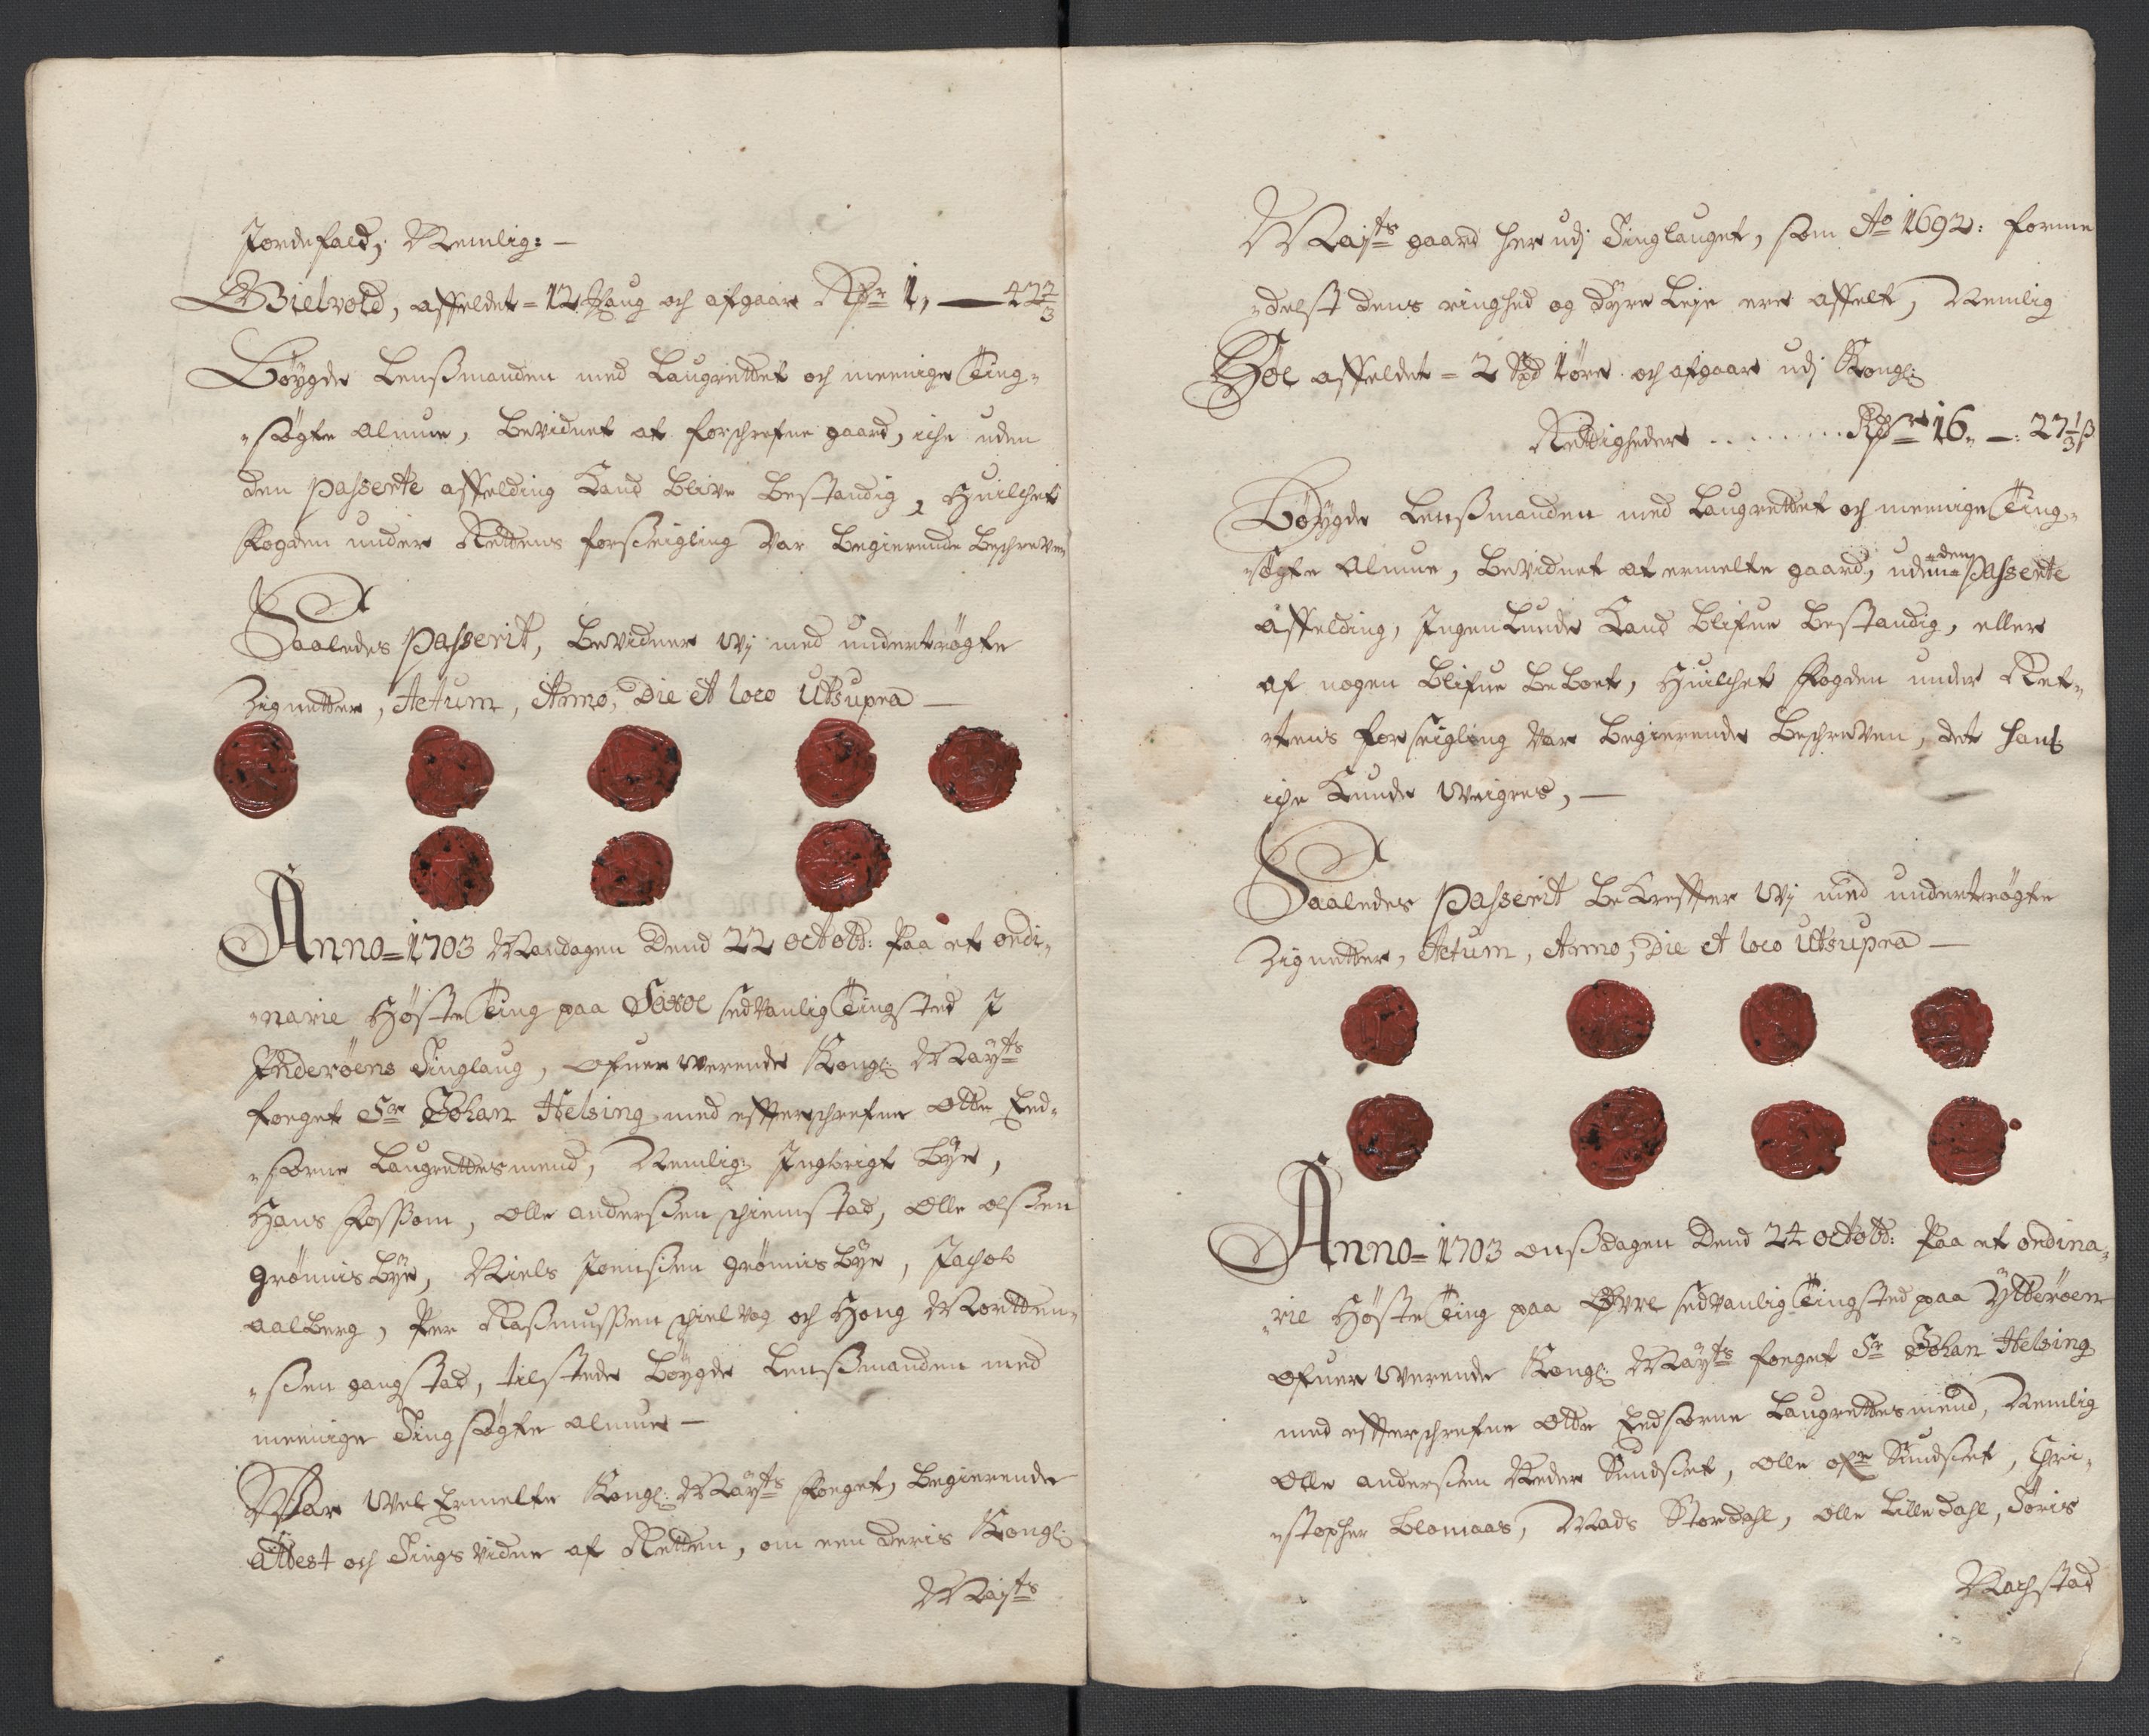 Jordefald, Nemlig: —
Gielvold, affeldet = 12 Haug och afgaar Rdr 1, — 42 2/3
Böygde Lensßmanden med Laugrettet och meenige Ting-
søgte Almue, Bevidnet at forschrefne gaard, iche uden
den passerte affelding Kand blive Bestandig, Huilchet
Fogden under Rettens forsegling var Begierende Beschreven
Saaledes passerit, Bevidner Wj med undertrøgte
Zignetter, Actum, Anno, Die et loco Utsupra —
Anno = 1703 Mandagen Dend 22 octobr: Paa et ordi-
narie Høste Ting paa Saxoe sedvanlig Tingsted J
Jnderøens Tinglaug, ofuerwerende Kongl: Mayts
foeget Sr Johan Helsing med effterschrefne otte Eed-
sorne Laugrettesmend, Nemlig Jngbrigt Bye,
Hans Fossom, olle anderssen schiemstad, olle olssen
grønnisbye, Niels Joenssen grønnisbye, Jachob
aalberg, Per Rasmussen schielvog och Hong Mortten-
sen gangstad, tilstede Böygde Lensßmanden med
meenige Tingsøgte almue —
War Wel Ermelte Kongl: Mayts Foeget, Begierende
attest och Tings vidne af Retten, om een deris Kongl:
Majts
Majts gaard her udj Tinglauget, som Ao 1692: forme
delst dens ringhed og dyre Leje ere affelt, Nemlig
Høe affeldet = 2 Spd 1 öre och afgaar udj Kongl:
Rettigheder . . . . . . . . Rdr 16, —: 27 1/3 ß
Böygde Lensßmanden med Laugrettet och meenige Ting-
søgte Almue, Bevidnet at ermelte gaard, uden den passerte
affelding, Jngenlunde Kand Blifue Bestandig, eller
af nogen Blifue Beboet, Huilchet Fogden under Ret-
tens forseigling var Begierende Beschreven, det hans
iche Kunde Weigres, —
Saaledes passerit Bekreffter Wj med undertrøgte
Zignetter, Actum, Anno, Die et loco Utsupra —
Anno = 1703 onßdagen Dend 24 octobr: Paa et ordina-
rie Høste Ting paa Øvre sedvanlig Tingsted paa Ytterøen
ofuerwerende Kongl: Mayts foeget Sr Johan Helsing
med effterschrefne otte Eedsorne Laugrettesmend, Nemlig
olle anderssen Neder Sundset, olle ofre Sundset, Chri-
stopher Blomaas, Mads Stordahl, olle Lilledahl, Joris
Nachstad